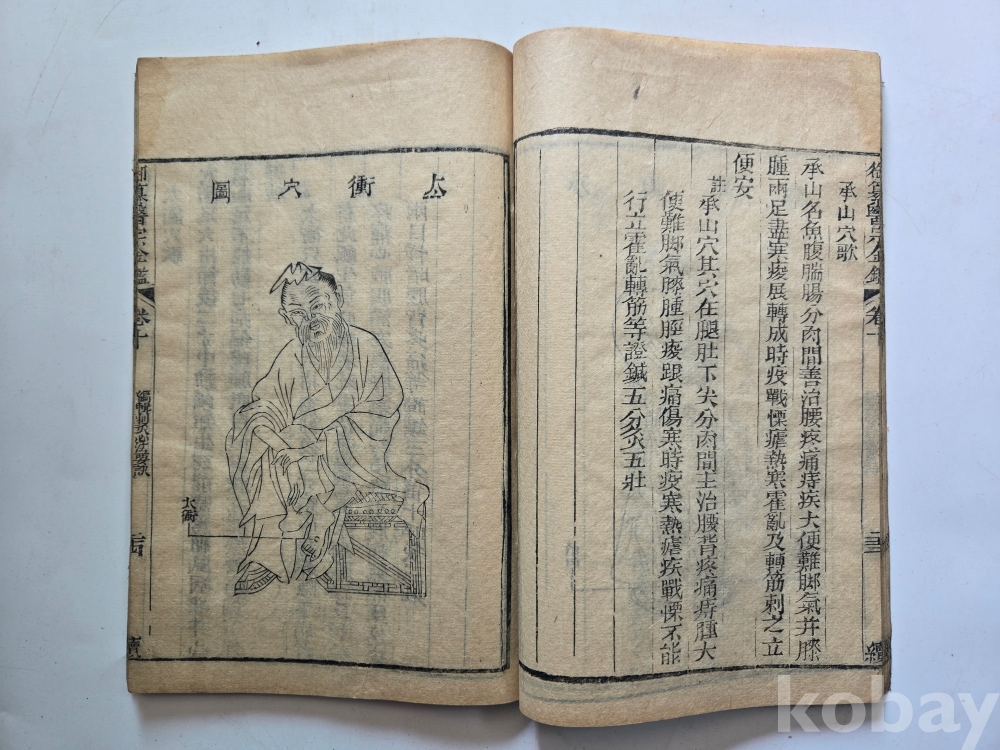 御纂醫宗金鑑
承山穴歌
承山名魚腹腨腸分肉間善治腰疼痛痔疾大便難脚氣并膝
腫兩足盡寒痠展轉成時疫戰慄瘧熱寒霍亂及轉筋刺之立
便安
註承山穴其穴在腿肚下尖分肉間主治腰背疼痛痔腫大
便難脚氣膝腫脛痠跟痛傷寒時疫寒熱瘧疾戰慄不能
行立霍亂轉筋等證鍼五分灸五壯
太衝穴圖
太衝
御纂醫宗金鑑
卷十
編輯刺灸心法要訣
kobay